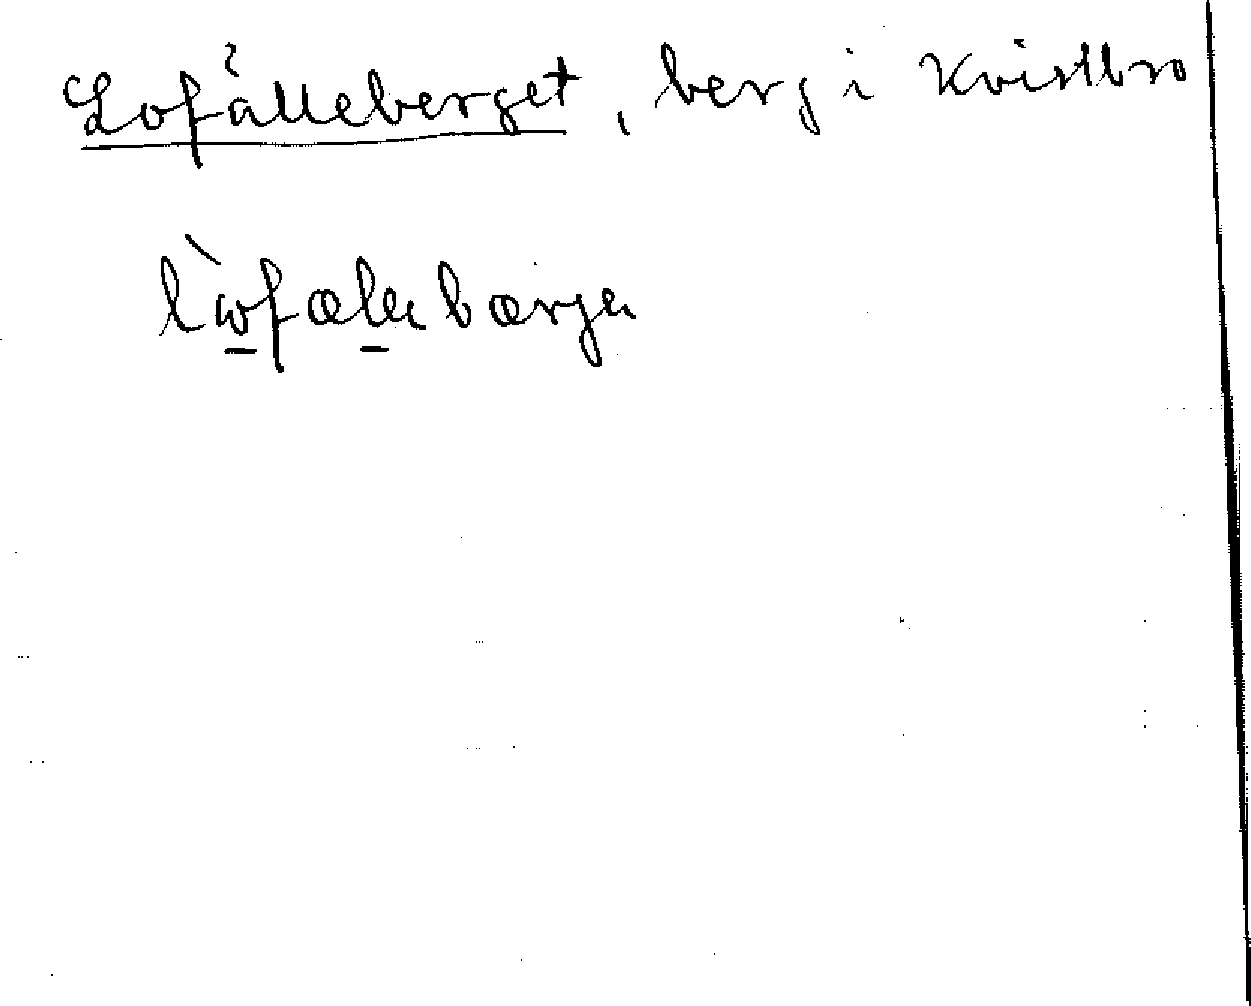 Lofälleberget, berg i Kvistbro
lὼfæləbærjə